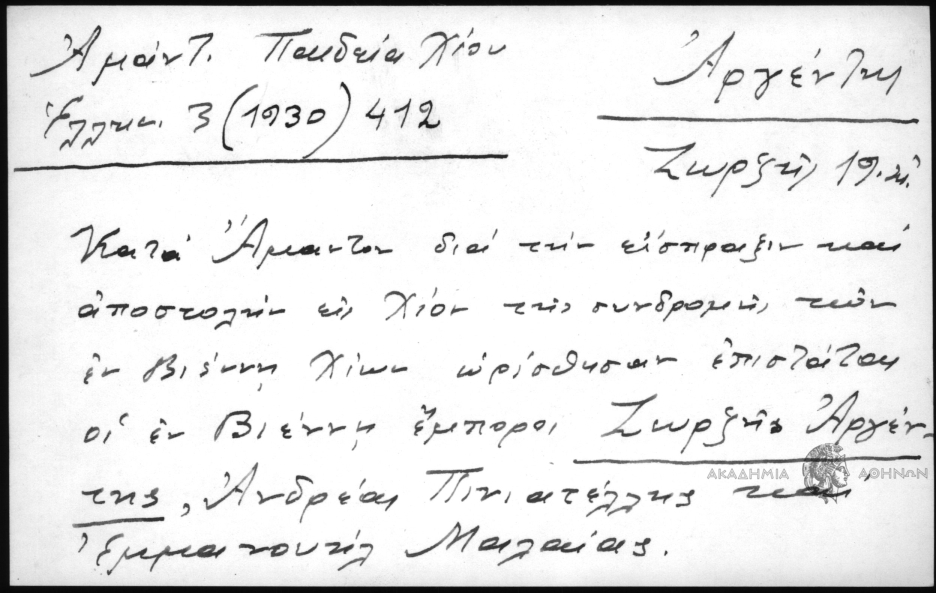 Ἀμάντ. Παιδεία Χίου
Ἑλλην. 3 (1930) 412
Ἀργέντης
Ζωρζῆς 19. αἰ.
Κατὰ Ἄμαντον διὰ τὴν εἴσπραξιν καὶ
ἀποστολὴν εἰς Χίον τῆς συνδρομῆς τῶν
ἐν Βιέννῃ Χίων ὡρίσθησαν ἐπιστάται
οἱ ἐν Βιέννῃ ἔμποροι Ζωρζῆς Ἀργέν-
της, Ἀνδρέας Πινιατέλλης καὶ
Ἐμμανουὴλ Μαλαίας.
ΑΚΑΔΗΜΙΑ ΑΘΗΝΩΝ